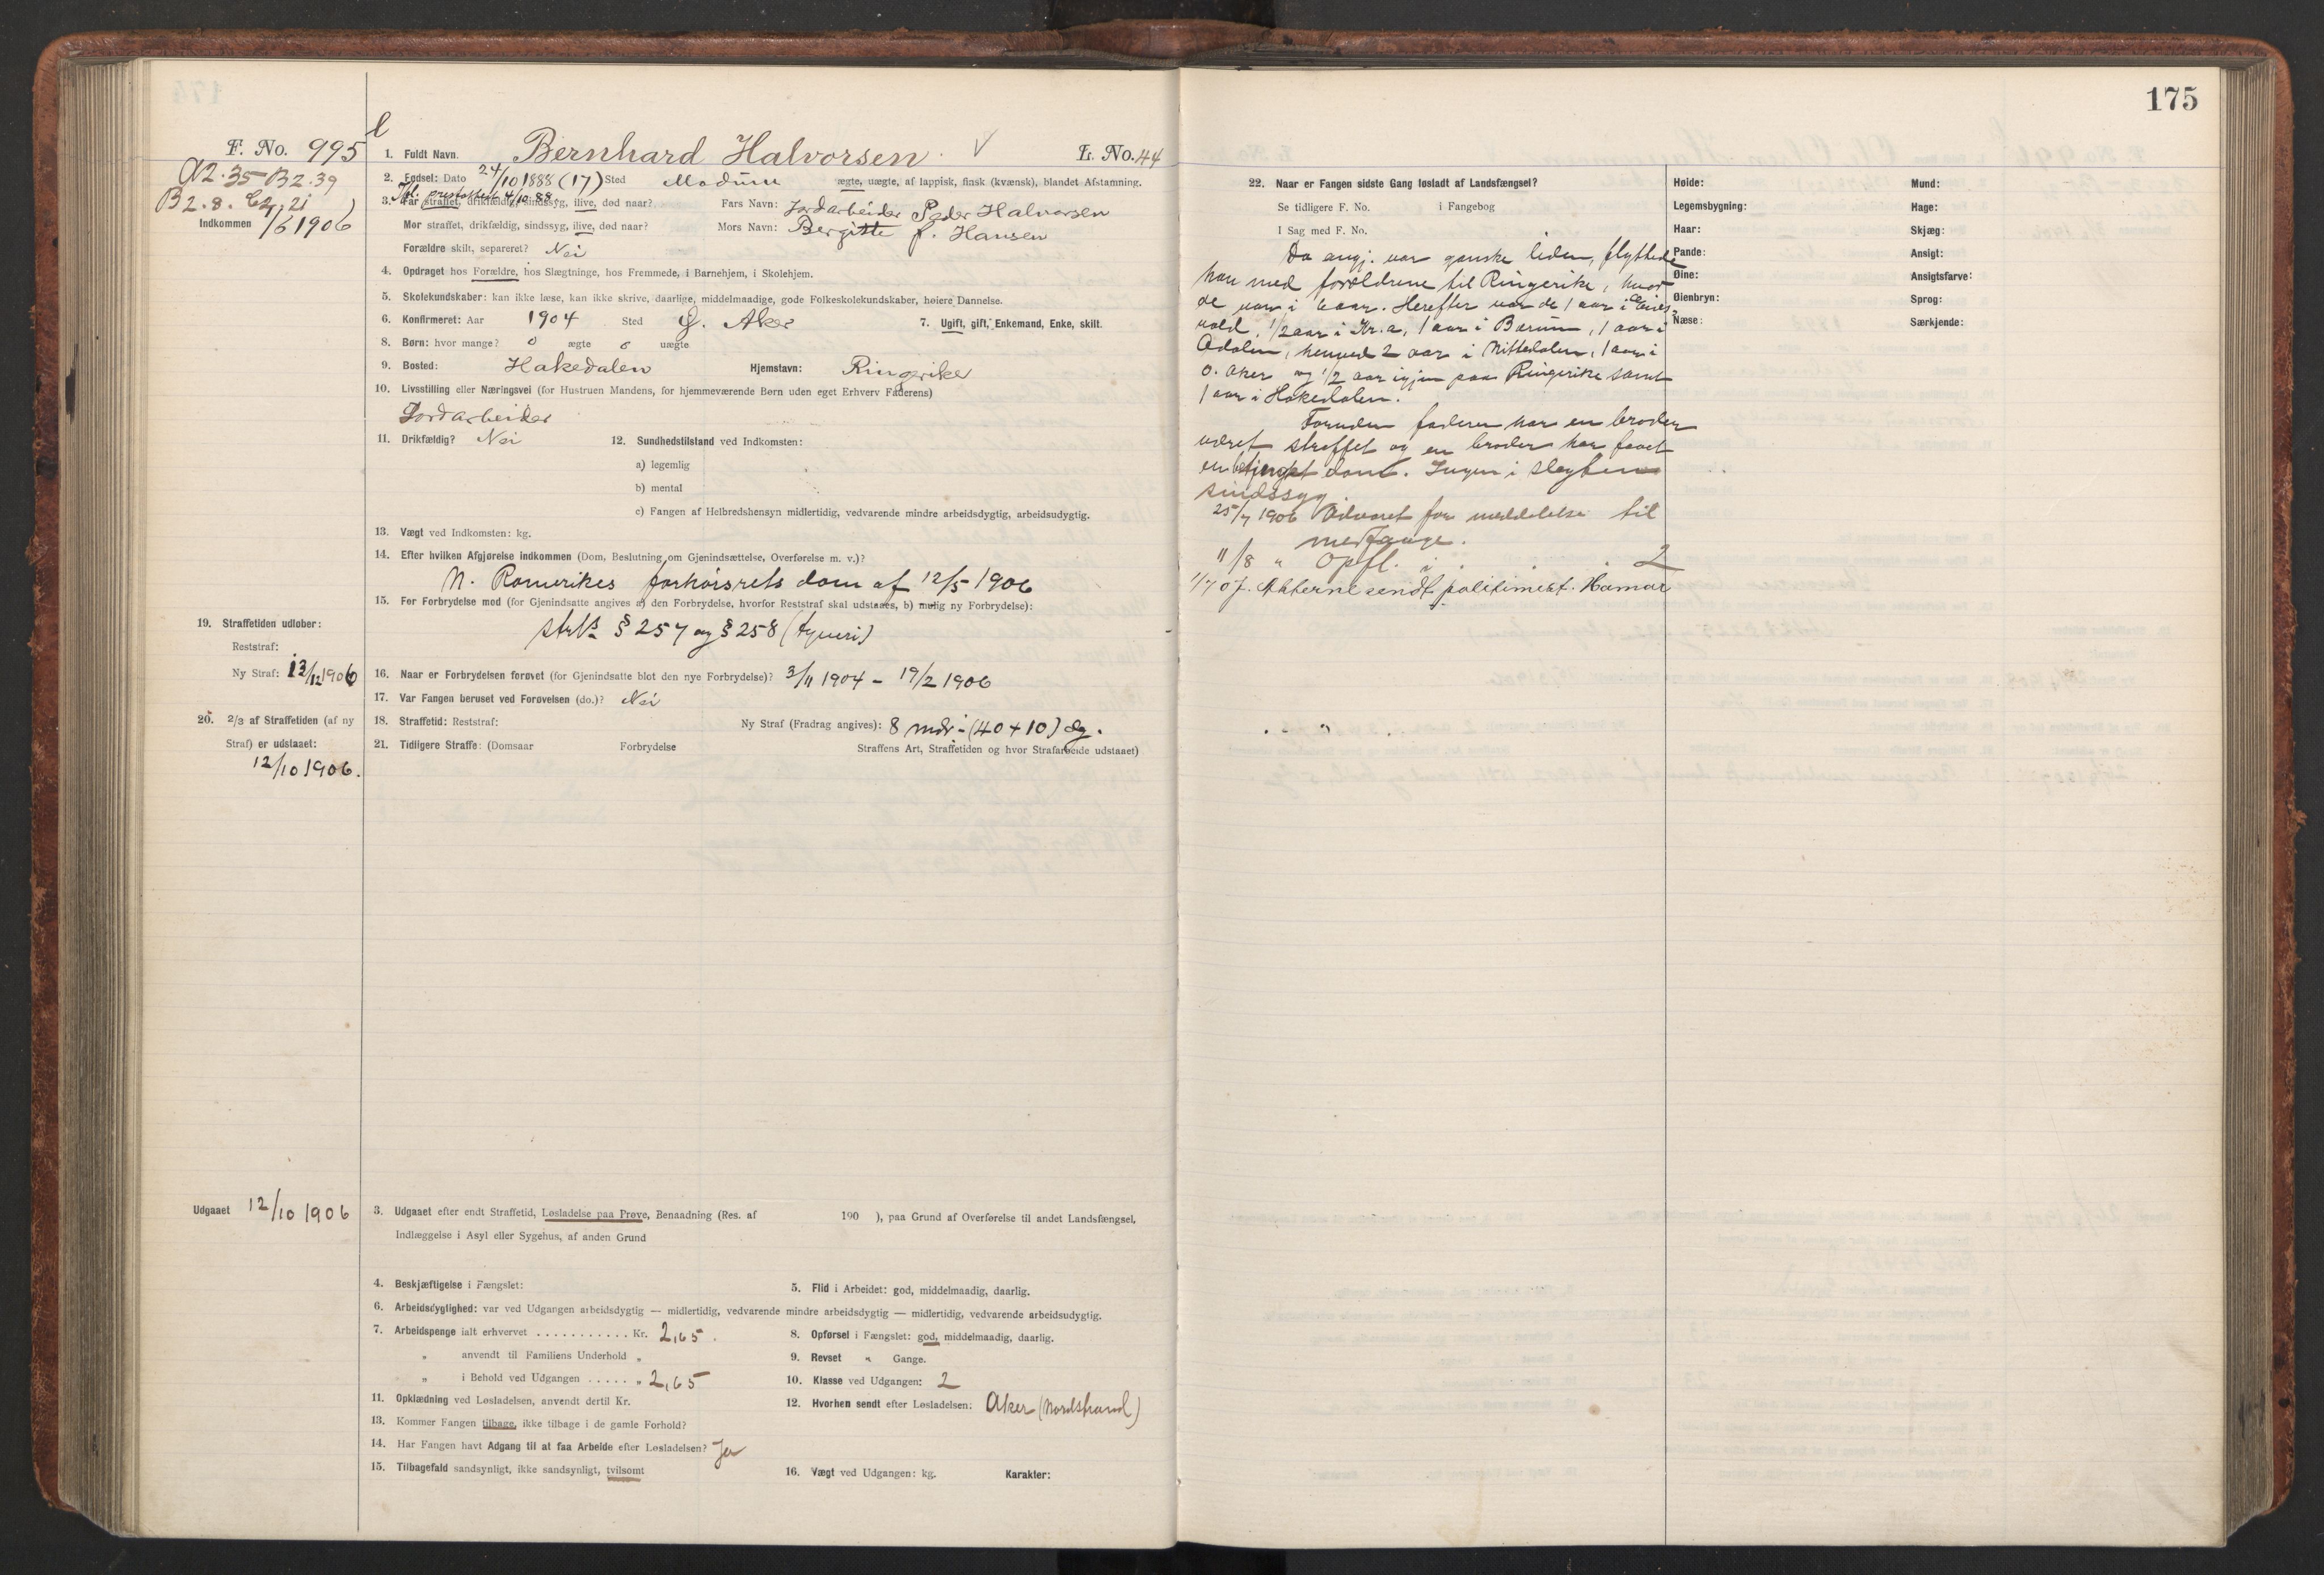 175
F. No. 995
A2.35-B2.39
B2.8. C4, 21
Indkommen 1/6 1906
1. Fuldt Navn. Bernhard Halvorsen. L. No. 44
2. Fødsel: Dato 24/10 1888 (17) Sted Modum ægte, uægte, af lappisk, finsk (kvænsk), blandet Afstamning.
Ifl. prestattest 4/10 88.
3. Far straffet, drikfældig, sindssyg, ilive, død naar? Fars Navn: Jordarbeider Peder Halvorsen
Mor straffet, drikfældig, sindssyg, ilive, død naar? Mors Navn: Bergitte f. Hansen
Forældre skilt, separeret? Nei
4. Opdraget hos Forældre, hos Slægtninge, hos Fremmede, i Barnehjem, i Skolehjem.
5. Skolekundskaber: kan ikke læse, kan ikke skrive, daarlige, middelmaadige, gode Folkeskolekundskaber, høiere Dannelse.
6. Konfirmeret: Aar 1904 Sted Ø. Aker 7. Ugift, gift, Enkemand, Enke, skilt.
8. Børn: hvor mange? 0 ægte 0 uægte
9. Bosted: Hakedalen Hjemstavn: Ringerike
10. Livsstilling eller Næringsvei (for Hustruen Mandens, for hjemmeværende Børn uden eget Erhverv Faderens)
Jordarbeider
11. Drikfældig? Nei 12. Sundhedstilstand ved Indkomsten:
a) legemlig
b) mental
c) Fangen af Helbredshensyn midlertidig, vedvarende mindre arbeidsdygtig, arbeidsudygtig.
13. Vægt ved Indkomsten: kg.
14. Efter hvilken Afgjørelse indkommen (Dom, Beslutning om Gjenindsættelse, Overførelse m. v.)?
N. Romerikes forhørsrets dom af 12/5 1906
15. For Forbrydelse mod (for Gjenindsatte angives a) den Forbrydelse, hvorfor Reststraf skal udstaaes, b) mulig ny Forbrydelse):
strl's § 257 og § 258 (tyveri)
19. Straffetiden udløber:
Reststraf:
Ny Straf: 13/12 1906
16. Naar er Forbrydelsen forøvet (for Gjenindsatte blot den nye Forbrydelse)? 3/11 1904 - 19/2 1906
17. Var Fangen beruset ved Forøvelsen (do.)? Nei
20. 2/3 af Straffetiden (af ny
Straf) er udstaaet:
12/10 1906.
18. Straffetid: Reststraf: Ny Straf (Fradrag angives): 8 mdr ÷ (40 + 10) dg.
21. Tidligere Straffe: (Domsaar Forbrydelse Straffens Art, Straffetiden og hvor Strafarbeide udstaaet)
Udgaaet 12/10 1906
3. Udgaaet efter endt Straffetid, Løsladelse paa Prøve, Benaadning (Res. af 190 ), paa Grund af Overførelse til andet Landsfængsel,
Indlæggelse i Asyl eller Sygehus, af anden Grund
4. Beskjæftigelse i Fængslet: 5. Flid i Arbeidet: god, middelmaadig, daarlig.
6. Arbeidsdygtighed: var ved Udgangen arbeidsdygtig — midlertidig, vedvarende mindre arbeidsdygtig — midlertidig, vedvarende arbeidsudygtig.
7. Arbeidspenge ialt erhvervet . . . . . . . . . . . Kr. 2,65. 8. Opførsel i Fængslet: god, middelmaadig, daarlig.
„ anvendt til Familiens Underhold „ 9. Revset " Gange.
„ i Behold ved Udgangen . . . . . „ 2,65 10. Klasse ved Udgangen: 2
11. Opklædning ved Løsladelsen, anvendt dertil Kr. 12. Hvorhen sendt efter Løsladelsen: Aker (Nordstrand)
13. Kommer Fangen tilbage, ikke tilbage i de gamle Forhold?
14. Har Fangen havt Adgang til at faa Arbeide efter Løsladelsen? Ja
15. Tilbagefald sandsynligt, ikke sandsynligt, tvilsomt 16. Vægt ved Udgangen: kg. Karakter:
22. Naar er Fangen sidste Gang løsladt af Landsfængsel?
Se tidligere F. No. i Fangebog
I Sag med F. No.
Da angj. var ganske liden, flyttede
han med forældrene til Ringerike, hvor
de var i 6 aar. Herefter var de 1 aar i Eids-
vold, 1/2 aar i Kr.a, 1 aar i Bærum, 1 aar i
Ådalen, henved 2 aar i Nittedalen, 1 aar i
Ø. Aker og 1/2 aar igjen paa Ringerike samt
1 aar i Hakedalen.
Foruden faderen har en broder
været straffet og en broder har faaet
en betinget dom. Ingen i slegten
sindssyg.
25/7 1906 Advaret for meddelelse til
medfange.
11/8 " Opfl. i 2
1/7 07. Akterne sendt politimest. Hamar
Høide:
Legemsbygning:
Haar:
Pande:
Øine:
Øienbryn:
Næse:
Mund:
Hage:
Skjæg:
Ansigt:
Ansigtsfarve:
Sprog:
Særkjende: